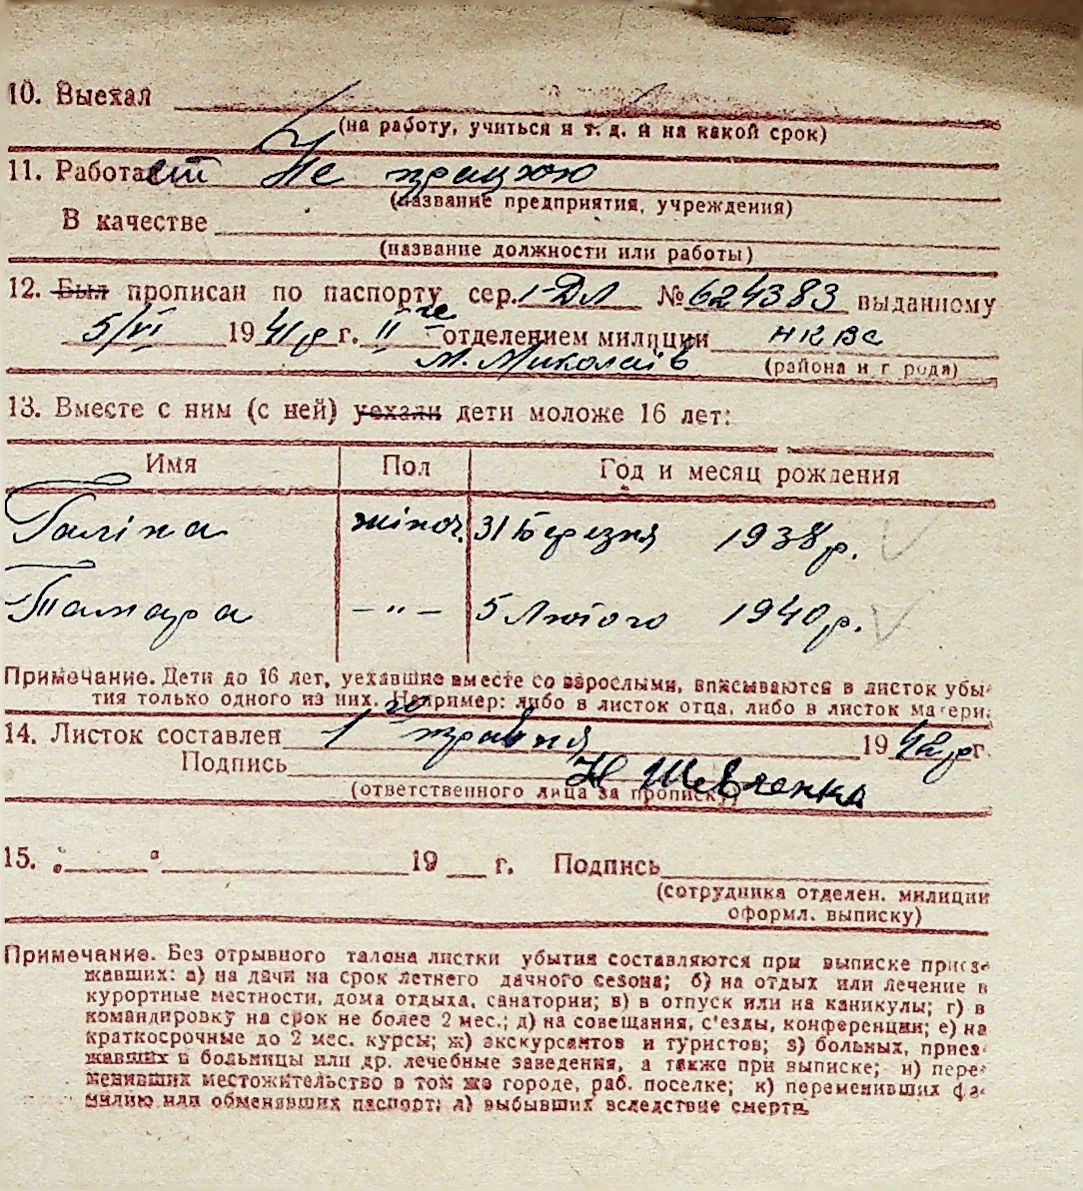 10. Выехал
(на работу, учиться и т. д. и на какой срок)
11. Работает Не працюю
(название предприятия, учреждения)
В качестве
(название должности или работы)
12. Был прописан по паспорту сер. I-ДЛ № 624383 выданному
5/VI 1941 р г. II отделением милиции НКВС
м. Миколаїв (района и города)
13. Вместе с ним (с ней) уехали дети моложе 16 лет:
Имя Пол Год и месяц рождения
Галіна жіноч. 31 Березня 1938 р.
Тамара —"— 5 Лютого 1940 р.
Примечание. Дети до 16 лет, уехавшие вместе со взрослыми, вписываются в листок убы-
тия только одного из них. Например: либо в листок отца, либо в листок матери.
14. Листок составлен 1 го травня 1942 р г.
Подпись Н Шевченко
(ответственного лица за прописку)
15. " " 19 г. Подпись
(сотрудника отделен. милиции
оформл. выписку)
Примечание. Без отрывного талона листки убытия составляются при выписке приез-
жавших: а) на дачи на срок летнего дачного сезона; б) на отдых или лечение в
курортные местности, дома отдыха, санатории; в) в отпуск или на каникулы; г) в
командировку на срок не более 2 мес.; д) на совещания, с'езды, конференции; е) на
краткосрочные до 2 мес. курсы; ж) экскурсантов и туристов; з) больных, приез-
жавших в больницы или др. лечебные заведения, а также при выписке; и) пере-
менивших местожительство в том же городе, раб. поселке; к) переменивших фа-
милию или обменявших паспорт; л) выбывших вследствие смерти.